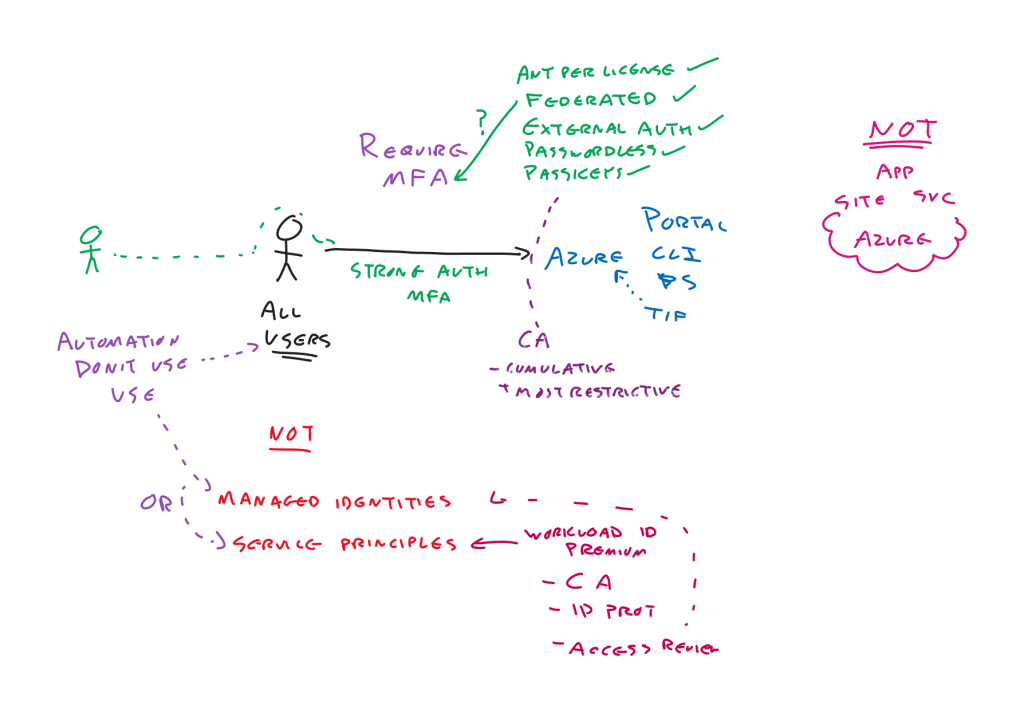 ANT PER LICENSE
FEDERATED
EXTERNAL AUTH
PASSWORDLESS
PASSKEYS
?
REQUIRE
MFA
NOT
APP
SITE SVC
AZURE
PORTAL
AZURE CLI
PS
TIF
STRONG AUTH
MFA
ALL
USERS
AUTOMATION
DON'T USE
USE
CA
- CUMULATIVE
+ MOST RESTRICTIVE
NOT
OR
MANAGED IDENTITIES
SERVICE PRINCIPLES
WORKLOAD ID
PREMIUM
- CA
- ID PROT
- ACCESS REVIEW